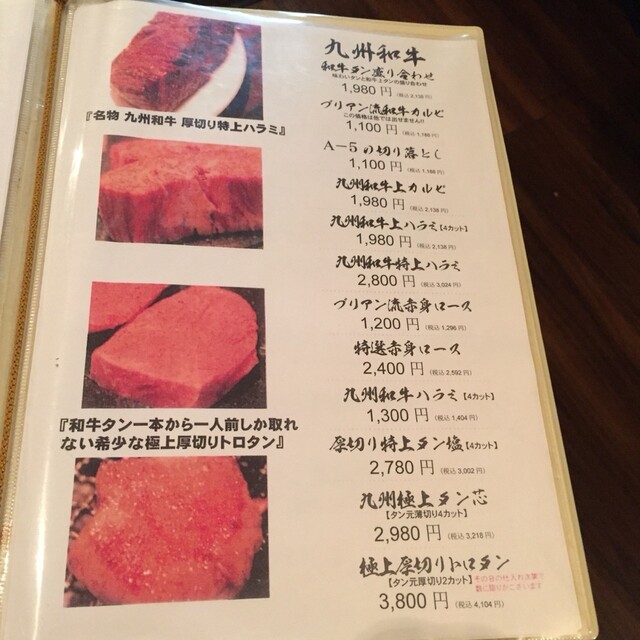 『名物 九州和牛 厚切り特上ハラミ』
『和牛タン一本から一人前しか取れ
ない希少な極上厚切りトロタン』
九州和牛
和牛タン盛り合わせ
味わいタンと和牛上タンの盛り合わせ
1,980 円 (税込 2,138 円)
ブリアン流和牛カルビ
この価格は他では出せません!!
1,100 円 (税込 1,188 円)
A-5の切り落とし
1,100 円 (税込 1,188 円)
九州和牛上カルビ
1,980 円 (税込 2,138 円)
九州和牛上ハラミ【4カット】
1,980 円 (税込 2,138 円)
九州和牛特上ハラミ
2,800 円 (税込 3,024 円)
ブリアン流赤身ロース
1,200 円 (税込 1,296 円)
特選赤身ロース
2,400 円 (税込 2,592 円)
九州和牛ハラミ【4カット】
1,300 円 (税込 1,404 円)
厚切り特上タン塩【4カット】
2,780 円 (税込 3,002 円)
九州極上タン芯
【タン元薄切り4カット】
2,980 円 (税込 3,218 円)
極上厚切りトロタン
【タン元厚切り2カット】
その日の仕入れ次第で
数に限りがございます
3,800 円 (税込 4,104 円)